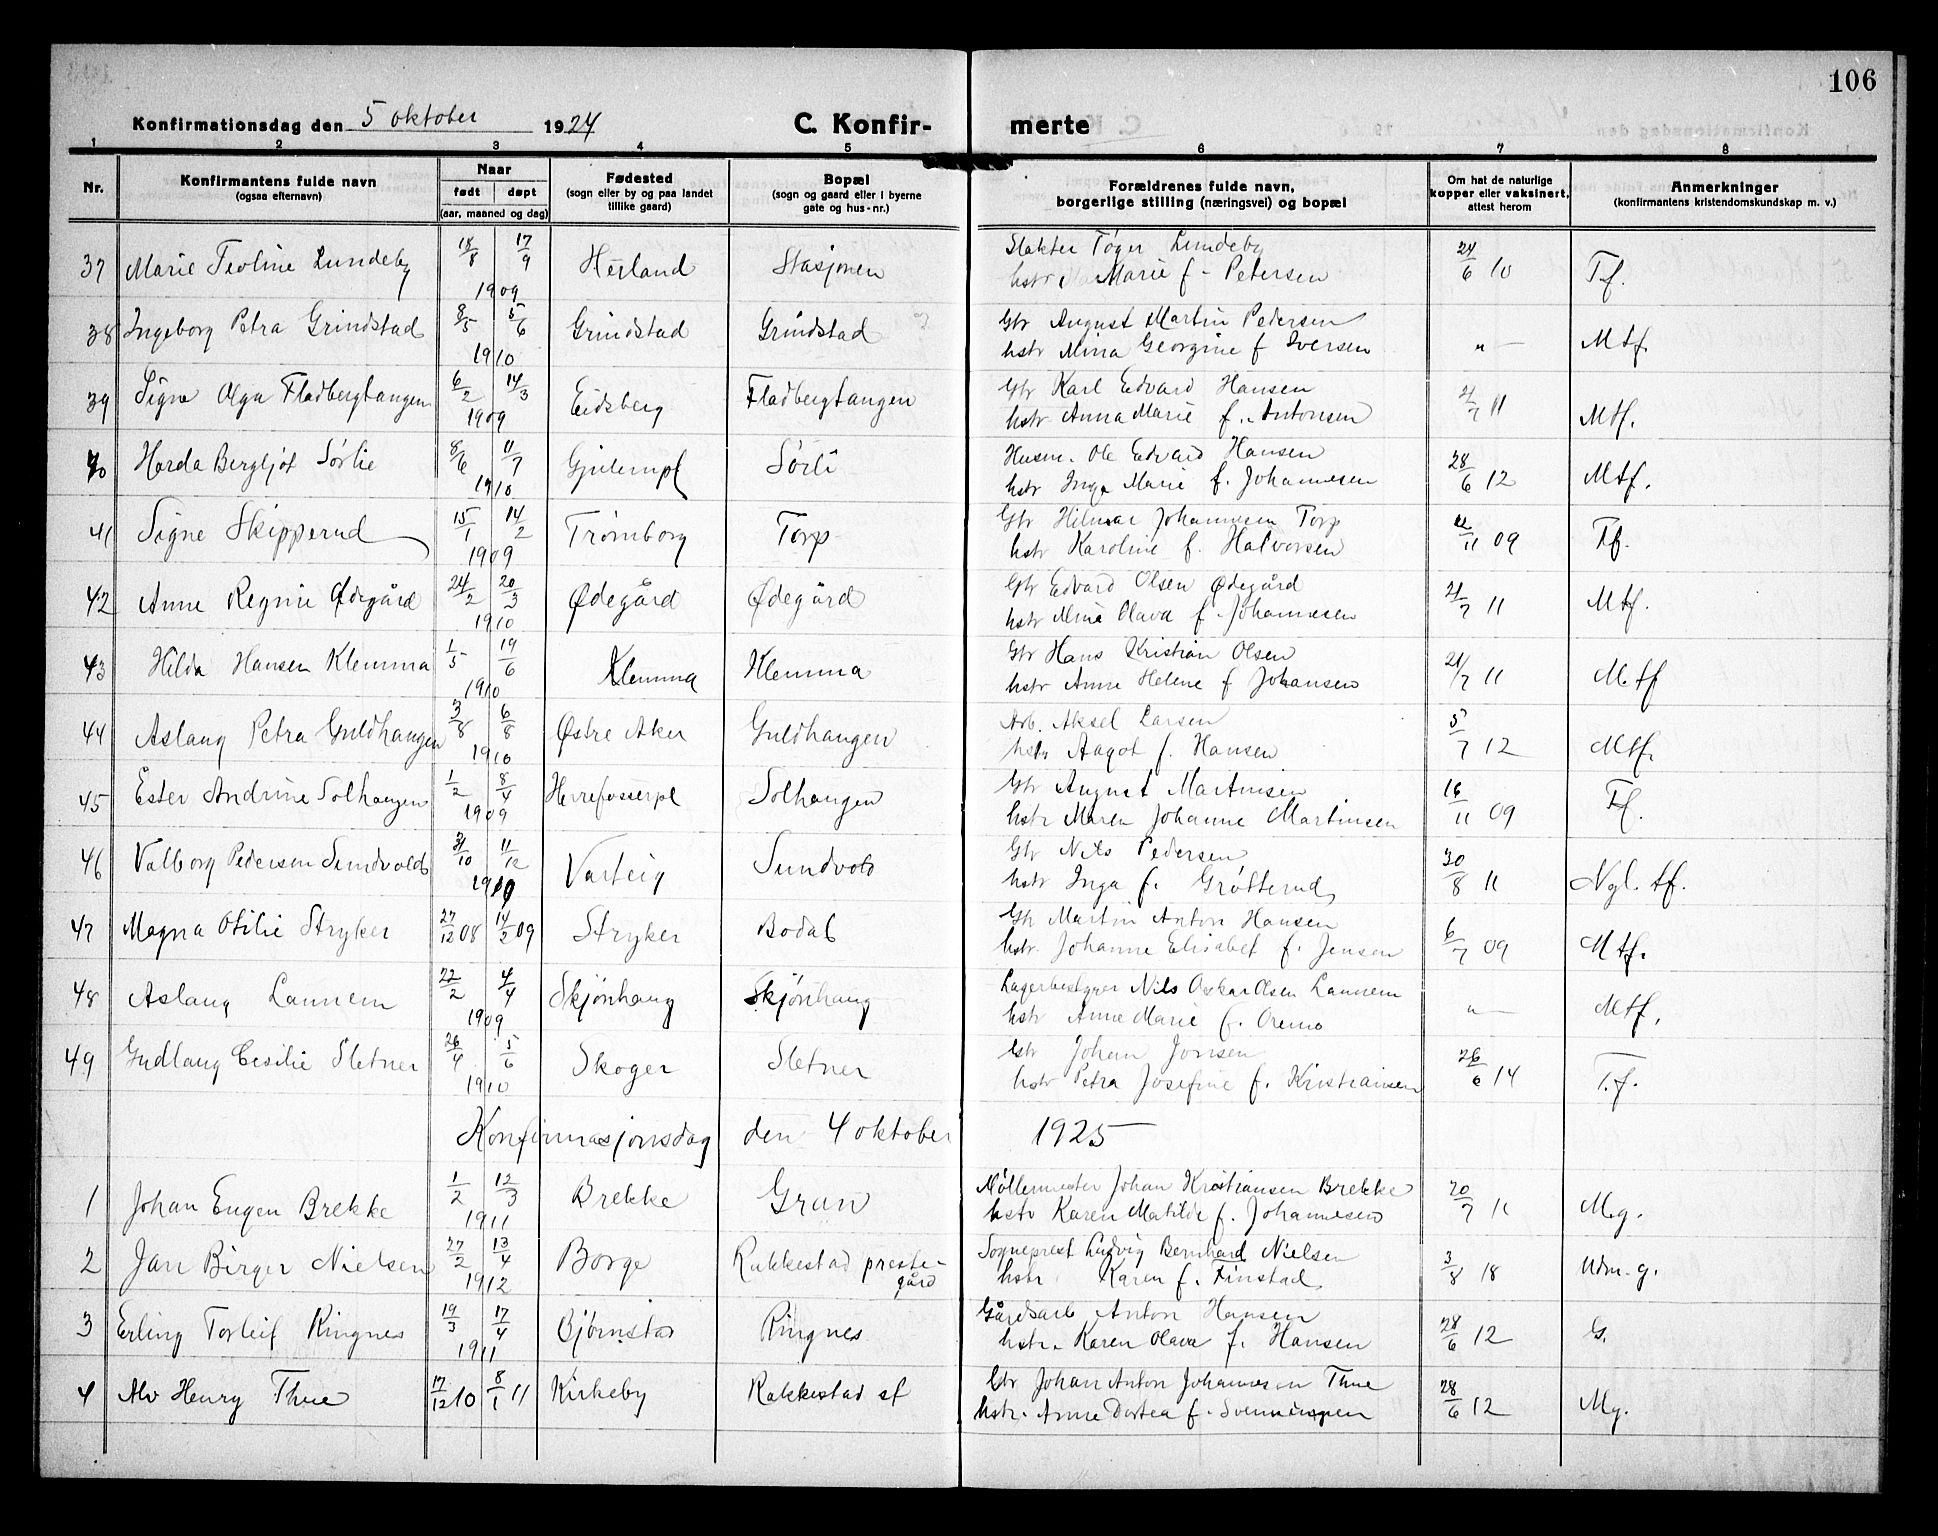 106
Konfirmationsdag den 5 oktober 1924 C. Konfir- merte
1 2 3 4 5 6 7 8
Nr. Konfirmantens fulde navn (ogsaa efternavn) Naar født døpt (aar, maaned og dag) Fødested (sogn eller by og paa landet tillike gaard) Bopæl (sogn og gaard eller i byerne gate og hus-nr.) Forældrenes fulde navn, borgerlige stilling (næringsvei) og bopæl Om hat de naturlige kopper eller vaksinert, attest herom Anmerkninger (konfirmantens kristendomskundskap m. v.)
37 Marie Teoline Lundeby 18/8 17/9 1909 Herland Stasjonen Slakter Tøger Lundeby 24/6 10 Tf.
hstr. Marie f. Petersen
38 Ingeborg Petra Grindstad 8/5 5/6 1910 Grindstad Grindstad Gbr August Martin Pedersen " — Mtf.
hstr Mina Georgine f Iversen
39 Signe Olga Fladbergtangen 6/2 14/3 1909 Eidsberg Fladbergtangen Gbr Karl Edvard Hansen 21/7 11 Mtf.
hstr Anna Marie f. Antonsen
40 Harda Bergljot Sørlie 8/6 11/7 1910 Gjulempl Sørli Husm. Ole Edvard Hansen 28/6 12 Mtf.
hstr Inga Marie f. Johannesen
41 Signe Skipperud 15/1 14/2 1909 Trømborg Torp Gbr Hilmar Johannesen Torp 11 09 Tf.
hstr Karoline f. Halvorsen
42 Anne Regine Ødegård 24/2 20/3 1910 Ødegård Ødegård Gbr Edvard Olsen Ødegård 21/7 11 Mtf.
hstr Mina Olava f. Johannesen
43 Hilda Hansen Klemma 1/5 19/6 1910 Klemma Klemma Gbr Hans Kristian Olsen 21/7 11 Mtf
hstr Anne Helene f Johansen
44 Aslaug Petra Guldhaugen 3/8 6/8 1910 Østre Aker Guldhaugen Arb. Aksel Larsen 5/7 12 Mtf.
hstr Aagot f. Hansen
45 Ester Andrine Solhaugen 1/2 8/4 1909 Herrefosserpl Solhaugen Gbr August Martinsen 16/11 09 Tf.
hstr Maren Johanne Martinsen
46 Valborg Pedersen Sundvold 31/10 11/12 1909 Varteig Sundvold Gbr Nils Pedersen 30/8 11 Ngl. tf.
hstr Inga f. Grøtterud
47 Magna Otilie Stryker 27/12 08 14/2 09 Stryker Bodal Gbr Martin Anton Hansen 6/7 09 Mtf.
hstr. Johanne Elisabet f. Jensen
48 Aslaug Lannem 22/2 4/4 1909 Skjønhaug Skjønhaug Lagerbestyrer Nils Oskar Olsen Lannem " — Mtf.
hstr Anne Marie f. Oremo
49 Gudlaug Cesilie Sletner 26/4 5/6 1910 Skoger Sletner Gbr Johan Jonsen 26/6 14 T.f.
hstr Petra Josefine f. Kristiansen
Konfirmasjonsdag den 4 oktober 1925
1 Johan Eugen Brekke 1/2 12/3 1911 Brekke Grav Møllermester Johan Kristiansen Brekke 20/7 11 M.g.
hstr Karen Matilde f. Johannesen
2 Jan Birger Nielsen 27/2 13/4 1912 Borge Rakkestad prestegård Sogneprest Ludvig Bernhard Nielsen 3/8 18 Udm. g.
hstr Karen f. Finstad
3 Erling Torleif Ringnes 19/3 17/4 1911 Bjørnstad Ringnes Gårdsarb Anton Hansen 28/6 12 G.
hstr. Karen Olava f. Hansen
4 Alv Henry Thue 17/12 10 8/1 11 Kirkeby Rakkestad st Gbr Johan Anton Johannesen Thue 28/6 12 Mg.
hstr. Anne Dortea f. Svenningsen